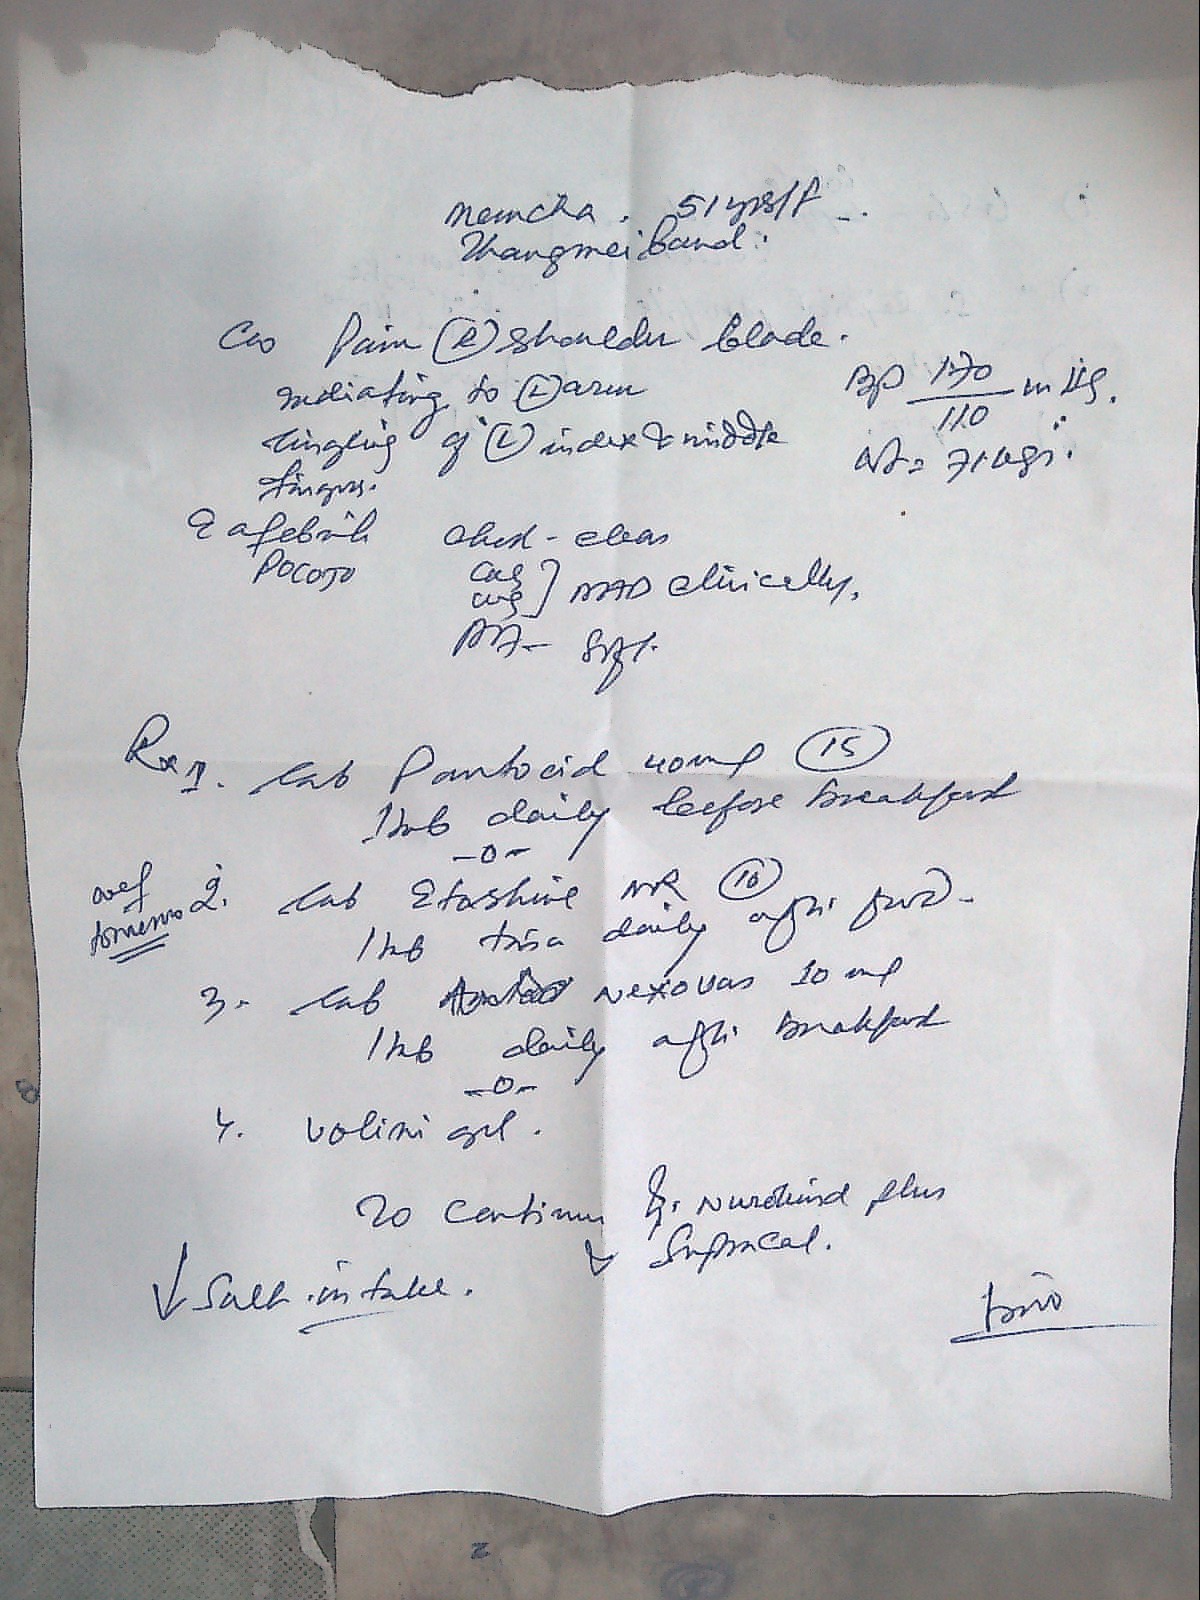 Nemcha. 51 yrs/F
Thangmeiband.
C/o Pain (R) shoulder blade.
radiating to (L) arm
BP 170/110 mmHg.
tingling of (L) index & middle
fingers.
Wt = 71 kgs.
afebrile chest - clear
POCOJO
CNS
CVS } NAD clinically.
P/A - Soft.
Rx 1. Tab Pantocid 40mg (15)
1 tab daily before breakfast
-0-
wef
tomorrow 2. Tab Etoshine MR (10)
1 tab daily after food -
3. Tab Nexovas 10 mg
1 tab daily after breakfast
-0-
4. Volini gel.
To continue Nurokind plus
Supracal.
↓ Salt intake.